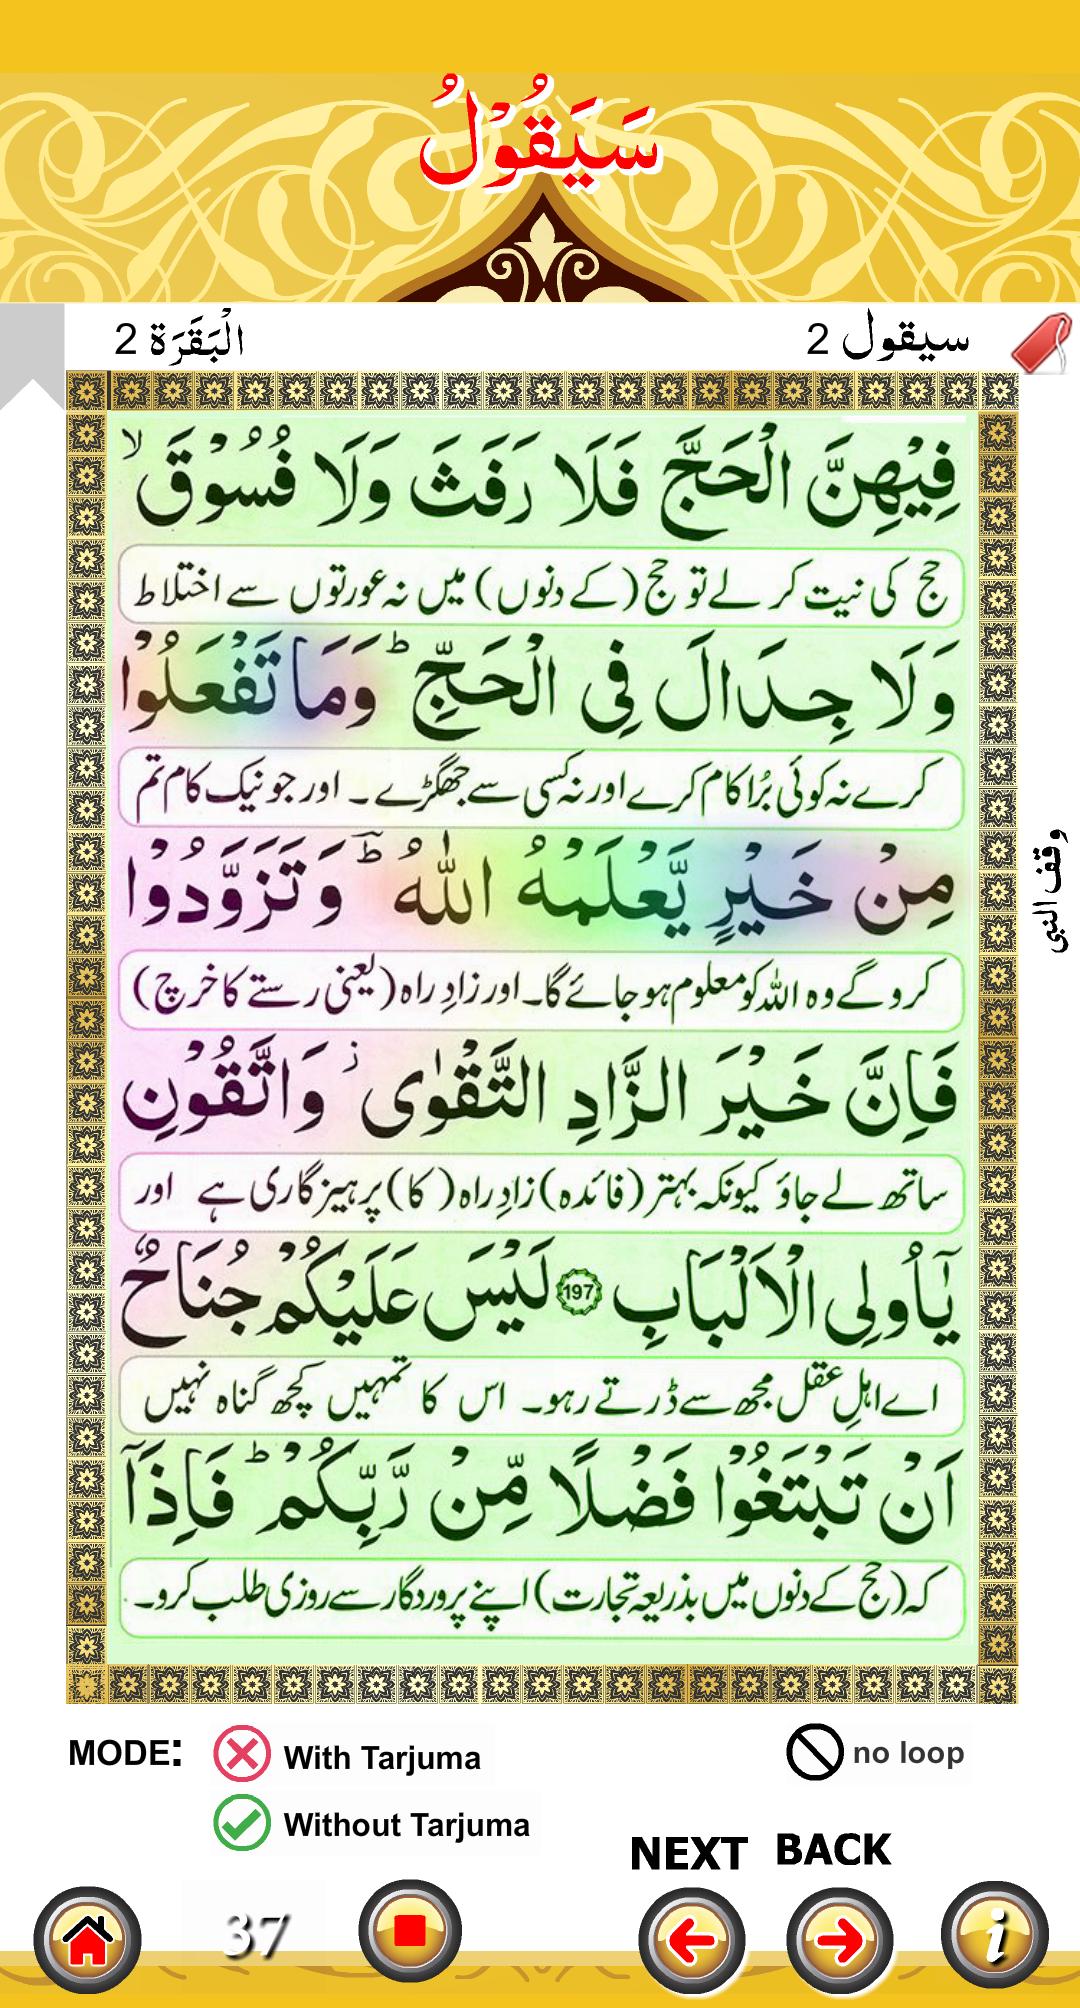 سَيَقُوْلُ
سيقول 2
الْبَقَرَة 2
فِيْهِنَّ الْحَجَّ فَلَا رَفَثَ وَلَا فُسُوْقَ ۙ
حج کی نیت کر لے تو حج (کے دنوں) میں نہ عورتوں سے اختلاط
وَلَا جِدَالَ فِى الْحَجِّ ؕ وَمَا تَفْعَلُوْا
کرے نہ کوئی بُرا کام کرے اور نہ کسی سے جھگڑے ۔ اور جو نیک کام تم
مِنْ خَيْرٍ يَّعْلَمْهُ اللّٰهُ ؕ وَتَزَوَّدُوْا
کرو گے وہ اللہ کو معلوم ہو جائے گا۔ اور زادِ راہ (یعنی رستے کا خرچ)
فَاِنَّ خَيْرَ الزَّادِ التَّقْوٰى ۡ وَاتَّقُوْنِ
ساتھ لے جاؤ کیونکہ بہتر (فائدہ) زادِ راہ (کا) پرہیزگاری ہے اور
يٰۤاُولِى الْاَلْبَابِ 197 لَيْسَ عَلَيْكُمْ جُنَاحٌ
اے اہلِ عقل مجھ سے ڈرتے رہو۔ اس کا تمہیں کچھ گناہ نہیں
اَنْ تَبْتَغُوْا فَضْلًا مِّنْ رَّبِّكُمْ ؕ فَاِذَاۤ
کہ (حج کے دنوں میں بذریعہ تجارت) اپنے پروردگار سے روزی طلب کرو۔
وقف النبی
MODE:
With Tarjuma
no loop
Without Tarjuma
NEXT BACK
37
i